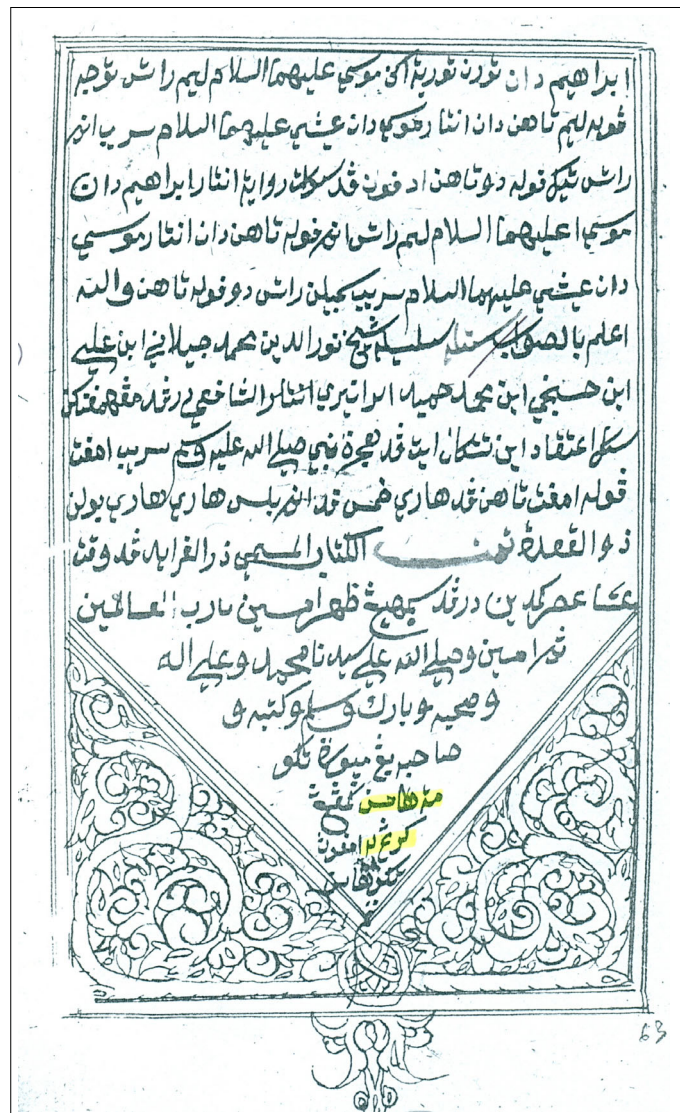 ابراهيم دان تورن تورية اكن موسي عليهما السلام ليم راتس توجه
ڤوله ليم تاهن دان انتار موسي دان عيشي عليهما السلام سريب انم
راتس تيݢ ڤوله دو تاهن ادڤون ڤد سوات رواية انتار ابراهيم دان
موسي عليهما السلام ليم راتس انم ڤوله تاهن دان انتار موسي
دان عيشي عليهما السلام سريب سمبيلن راتس دو ڤوله تاهن والله
اعلم بالصواب سلسيله شيخ نور الدين محمد جيلاني ابن علي
ابن حسنجي ابن محمد حميد الرانيري الشافعي درڤد مڠهمڤنكن
سكل اعتقاد اين تتكال ايت ڤد هجرة نبي صلي الله عليه وسلم سريب امڤت
ڤوله امڤت تاهن ڤد هاري خمس ڤد انم بلس هاري هاري بولن
ذوالقعدة تمت الكتاب المسمي درالفرايد ڤد وقت
عصر كمدين درڤد سمبهيڠ ظهر امين يارب العالمين
ثم امين وصلي الله علي سيدنا محمد وعلي اله
وصحبه وبارك وسلم وكتبه و
صاحبه يڠ
63